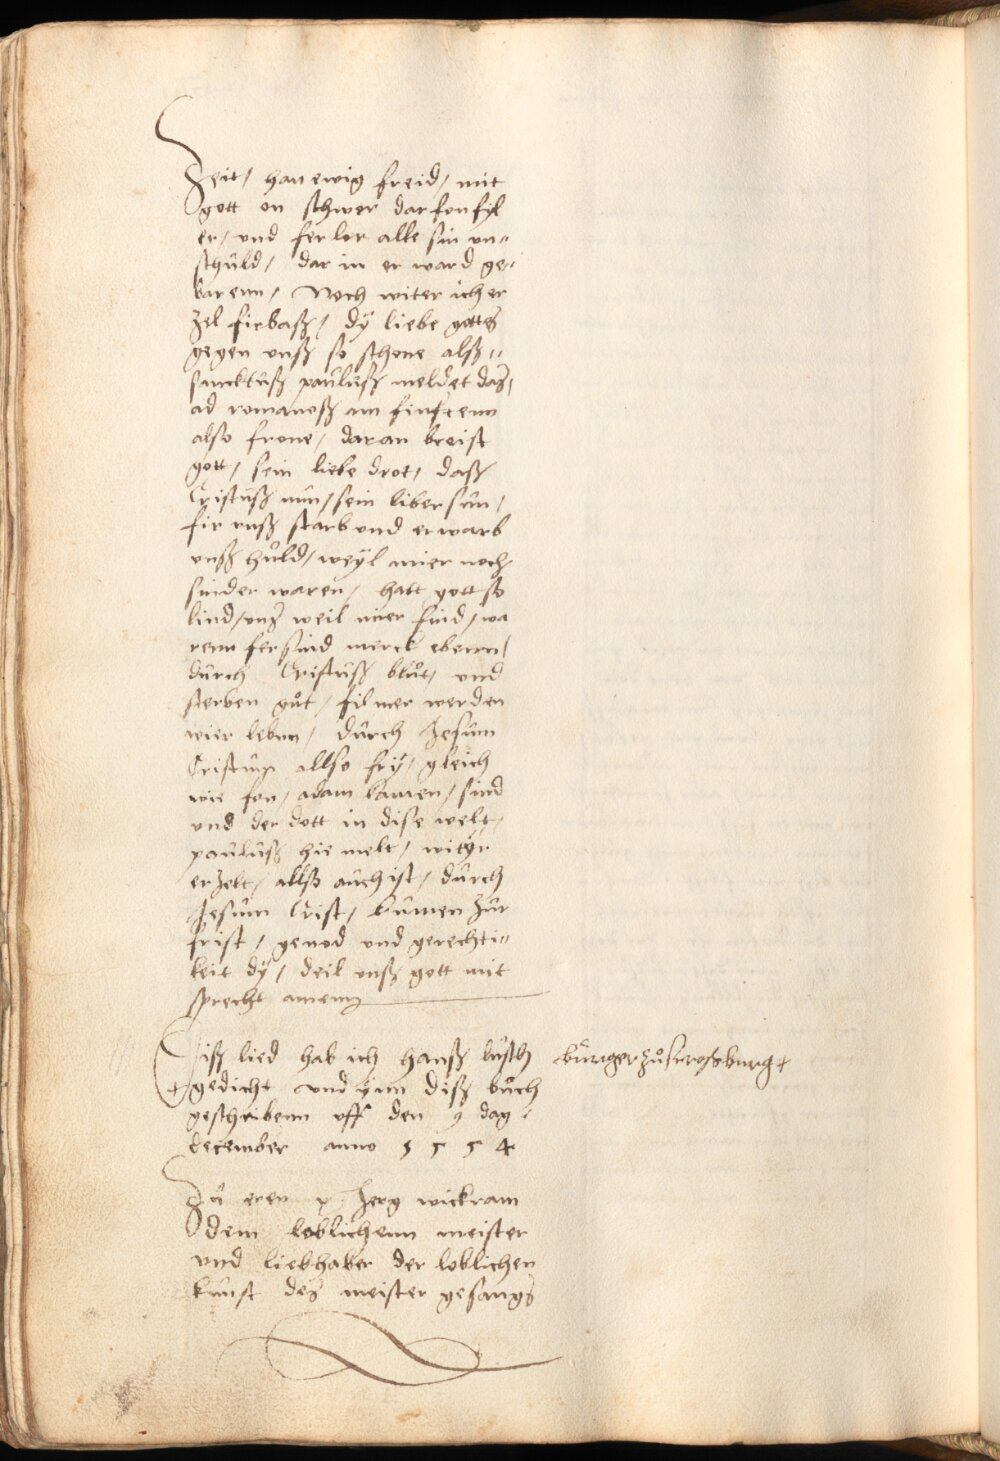 Zeit / han ewig freid / mit
gott on schwer dar fon fyl
er / und fer lor alle sin un=
schuld / dar in er ward ge=
barenn / Noch witer ich er
zel firbaß / dy liebe gottes
gegen unß so schone alß
sancktuß pauluß meldet das /
ad romanoß am finftenn
also frone / daran breist
gott / sein liebe drot / daß
Cristuß nun / sein liber sun /
fir unß starb und erwarb
unß huld / weyl mier noch
sinder waren / hatt gott so
lind / uns weil mier find / wa
renn fersind merck ebenn /
durch Cristuß bluot / und
sterben guot / fil mer werden
wier lebnn / durch Jesum
Cristum allso fry / gleich
wie fon / adam kamen / sind
und der dott in dise welt /
pauluß hie melt / wityr
erzelt / allso auch ist / durch
Jesum Crist / kumen zur
frist / genod und gerechti=
keit dy / deil unß gott mit
sprecht amenn
Diß lied hab ich Hanß burger zu stroßburg +
+ gedicht und ynn diß buch
geschribenn uff den 9 dag
december anno 1 5 5 4
Zu eren Jerg wickram
dem loblichenn meister
und liebhaber der loblichen
kunst des meister gesangs